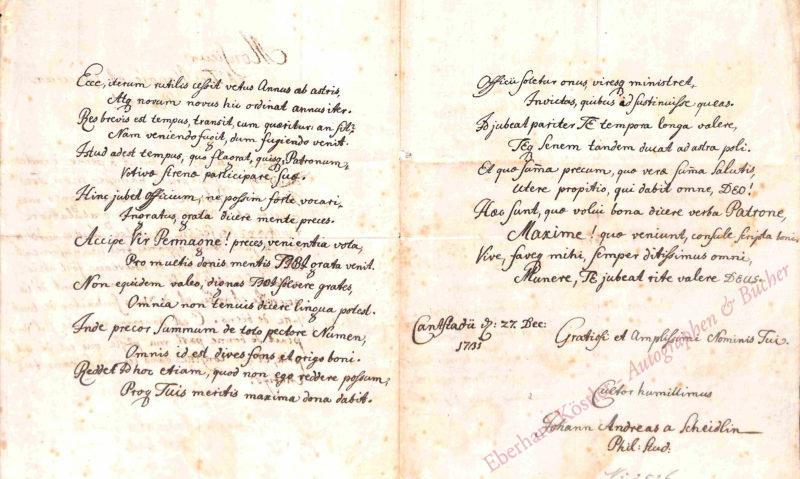 Monsieur
Ecce, iterum rutilis cessit vetus Annus ab astris,
Atq novum novus hic ordinat annus iter.
Res brevis est tempus, transit, cum quæritur an sit:
Nam veniendo fugit, dum fugiendo venit.
Istud adest tempus, quo flagrat, quisq, Patronum,
Votiva serenæ participare suæ.
Hinc jubet Officium, ne possim forte vocari,
Ingratus, grata dicere mente preces.
Accipe Vir Permagne! preces, venientia vota,
Pro multis donis mentis grata venit.
Non equidem valeo, dignas solvere grates,
Omnia non tenuis dicere lingua potest.
Inde precor Summum de toto pectore Numen,
Omnis id est dives fons et origo boni.
Reddet ad hoc etiam, quod non ego reddere possum,
Proq Tuis meritis maxima dona dabit.
Officii soletur onus, viresq ministret,
Invictas, quibus id sustinuisse queas.
Is jubeat pariter TE tempora longa valere,
TEq Senem tandem ducat ad astra poli.
Et quæ sum̃a precum, quæ vera sum̃a salutis,
Utere propitio, qui dabit omne, DEO!
Hæc sunt, quæ volui bona dicere verba Patrone,
Maxime! quæ veniunt, consule scripta boni
Vive, faveq mihi, semper ditissimus omni,
Munere, TE jubeat rite valere DEUS.
Cantstadii d: 27. Dec:
1731
Gratiosi et Amplissimi Nominis Tui.
Cultor humillimus
Johann Andreas a Scheidlin
Phil: Stud:
Eberhard Köstler Autographen & Bücher